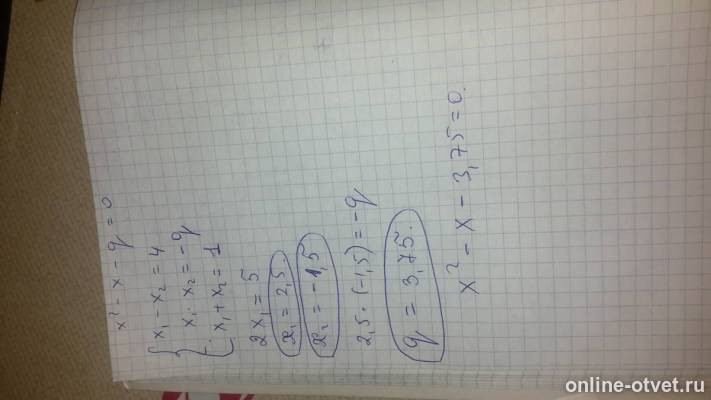 x² - x - q = 0
x₁ - x₂ = 4
x₁ · x₂ = -q
x₁ + x₂ = 1
2x₁ = 5
x₁ = 2,5.
x₂ = -1,5
2,5 · (-1,5) = -q
q = 3,75.
x² - x - 3,75 = 0.
online-otvet.ru